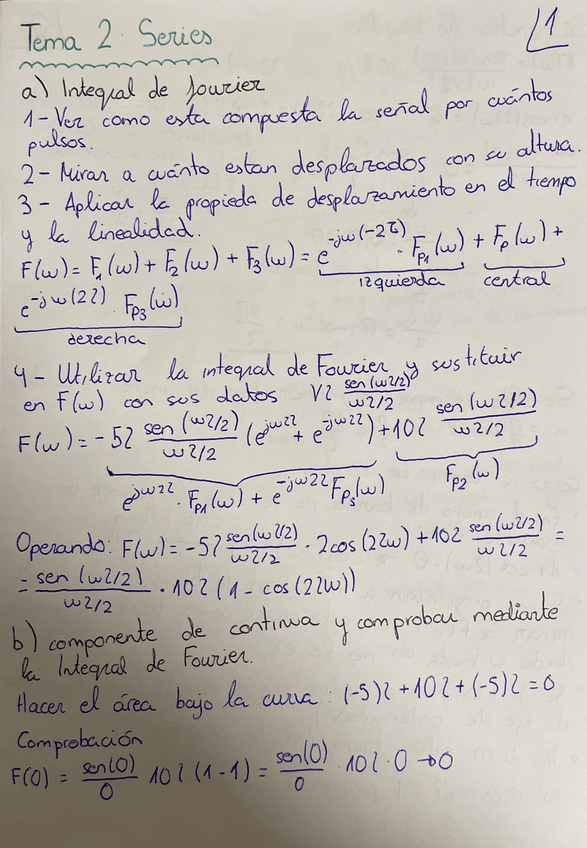 Tema 2: Series
1
a) Integral de fourier
1 - Ver como esta compuesta la señal por cuántos
pulsos.
2 - Mirar a cuánto estan desplazados con su altura.
3 - Aplicar la propieda de desplazamiento en el tiempo
y la linealidad.
F(ω) = F₁(ω) + F₂(ω) + F₃(ω) = e^-jω(-2τ) · F_P1(ω) + F_P(ω) +
izquierda central
e^-jω(2τ) · F_P3(ω)
derecha
4 - Utilizar la integral de Fourier y sustituir
en F(ω) con sus datos Vτ sen(ωτ/2)/ωτ/2
F(ω) = -5τ sen(ωτ/2)/ωτ/2 (e^jω2τ + e^-jω2τ) + 10τ sen(ωτ/2)/ωτ/2
e^jω2τ · F_P1(ω) + e^-jω2τ F_P3(ω) F_P2(ω)
Operando: F(ω) = -5τ sen(ωτ/2)/ωτ/2 · 2cos(2τω) + 10τ sen(ωτ/2)/ωτ/2 =
= sen(ωτ/2)/ωτ/2 · 10τ (1 - cos(2τω))
b) componente de continua y comprobar mediante
la Integral de Fourier.
Hacer el área bajo la curva: (-5)τ + 10τ + (-5)τ = 0
Comprobación
F(0) = sen(0)/0 10τ (1-1) = sen(0)/0 · 10τ · 0 → 0